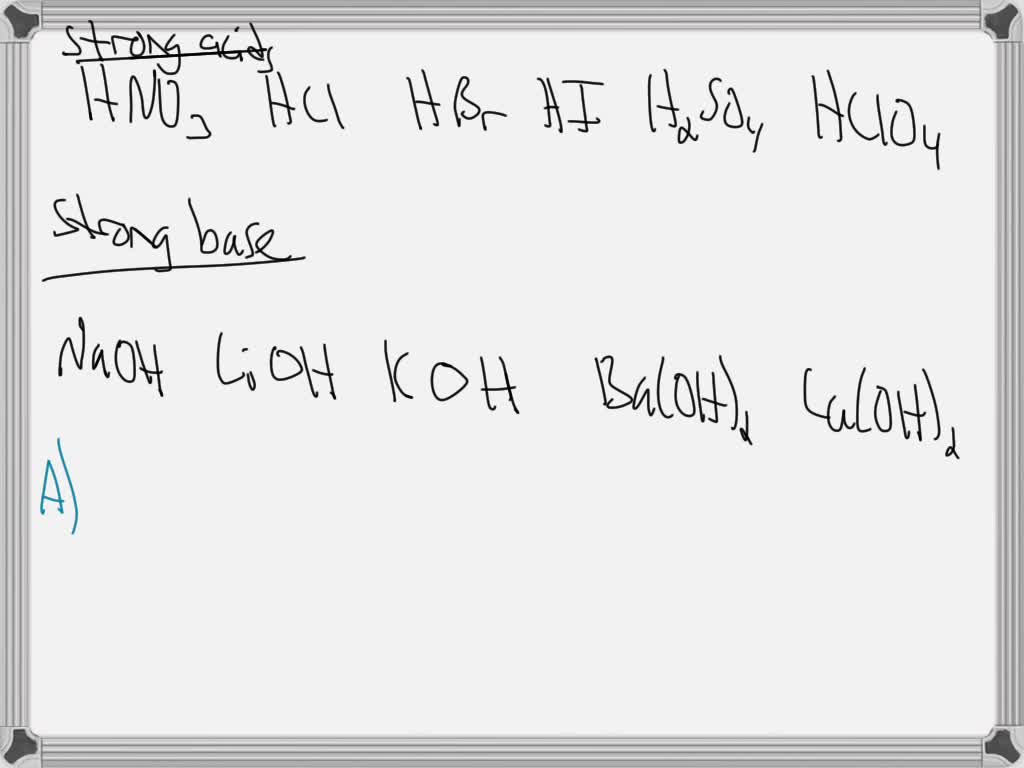 Strong acids
HNO3 HCl HBr HI H2SO4 HClO4
Strong base
NaOH LiOH KOH Ba(OH)2 Ca(OH)2
A)